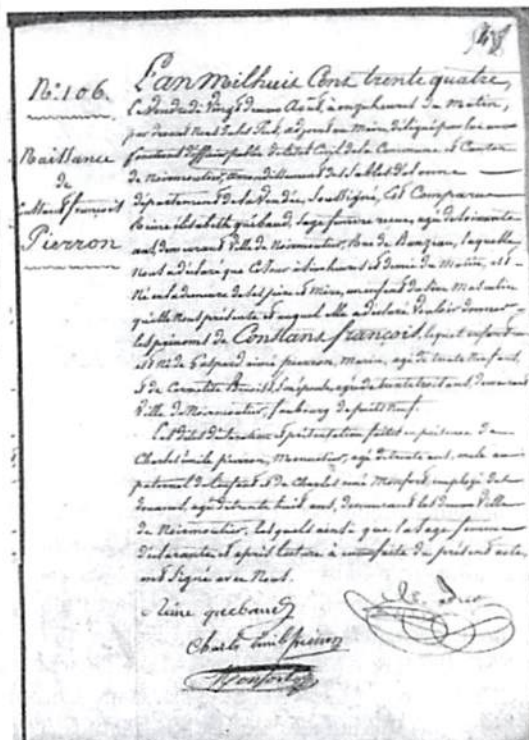 N.° 106.
Naissance
de
Constant françois
Pierron
L'an Mil huit Cent trente quatre,
Le Vendredi Vingt Août, à onze heures du Matin,
par devant Nous adjoint au Maire, délégué pour les
fonctions d'officier public de l'état Civil de la Commune et Canton
de Noirmoutier, arrondissement des Sables d'olonne
département de la Vendée, Soussigné, Est Comparue
Reine élisabeth québaud, Sage femme, agée de soixante
ans, demeurant Ville de Noirmoutier, Rue de Banzeau, laquelle
Nous a déclaré que Ce Jour à heures et demie du Matin, est
Né en la demeure de Ses père et Mère, un enfant du Sexe Masculin
qu'elle Nous présente et auquel elle a déclaré Vouloir donner
les prénoms de Constans françois, lequel enfant
est Né de Gaspard aimé pierron, Marin, agé de trente Neuf ans,
et de Benoist, Son épouse, agée de trente trois ans, demeurant
Ville de Noirmoutier, faubourg du puits Neuf.
Les dites déclaration et présentation faites en présence de
Charles émile pierron, Menuisier, agé de trente ans, oncle
paternel de l'enfant et de Charles aimé Monfort, employé des
douanes, agé de trente huit ans, demeurant les deux Ville
de Noirmoutier, lesquels ainsi que la Sage femme
déclarante et après lecture à eux faite du présent acte,
ont Signé avec Nous.
Reine
Charles emile pierron
Monfort